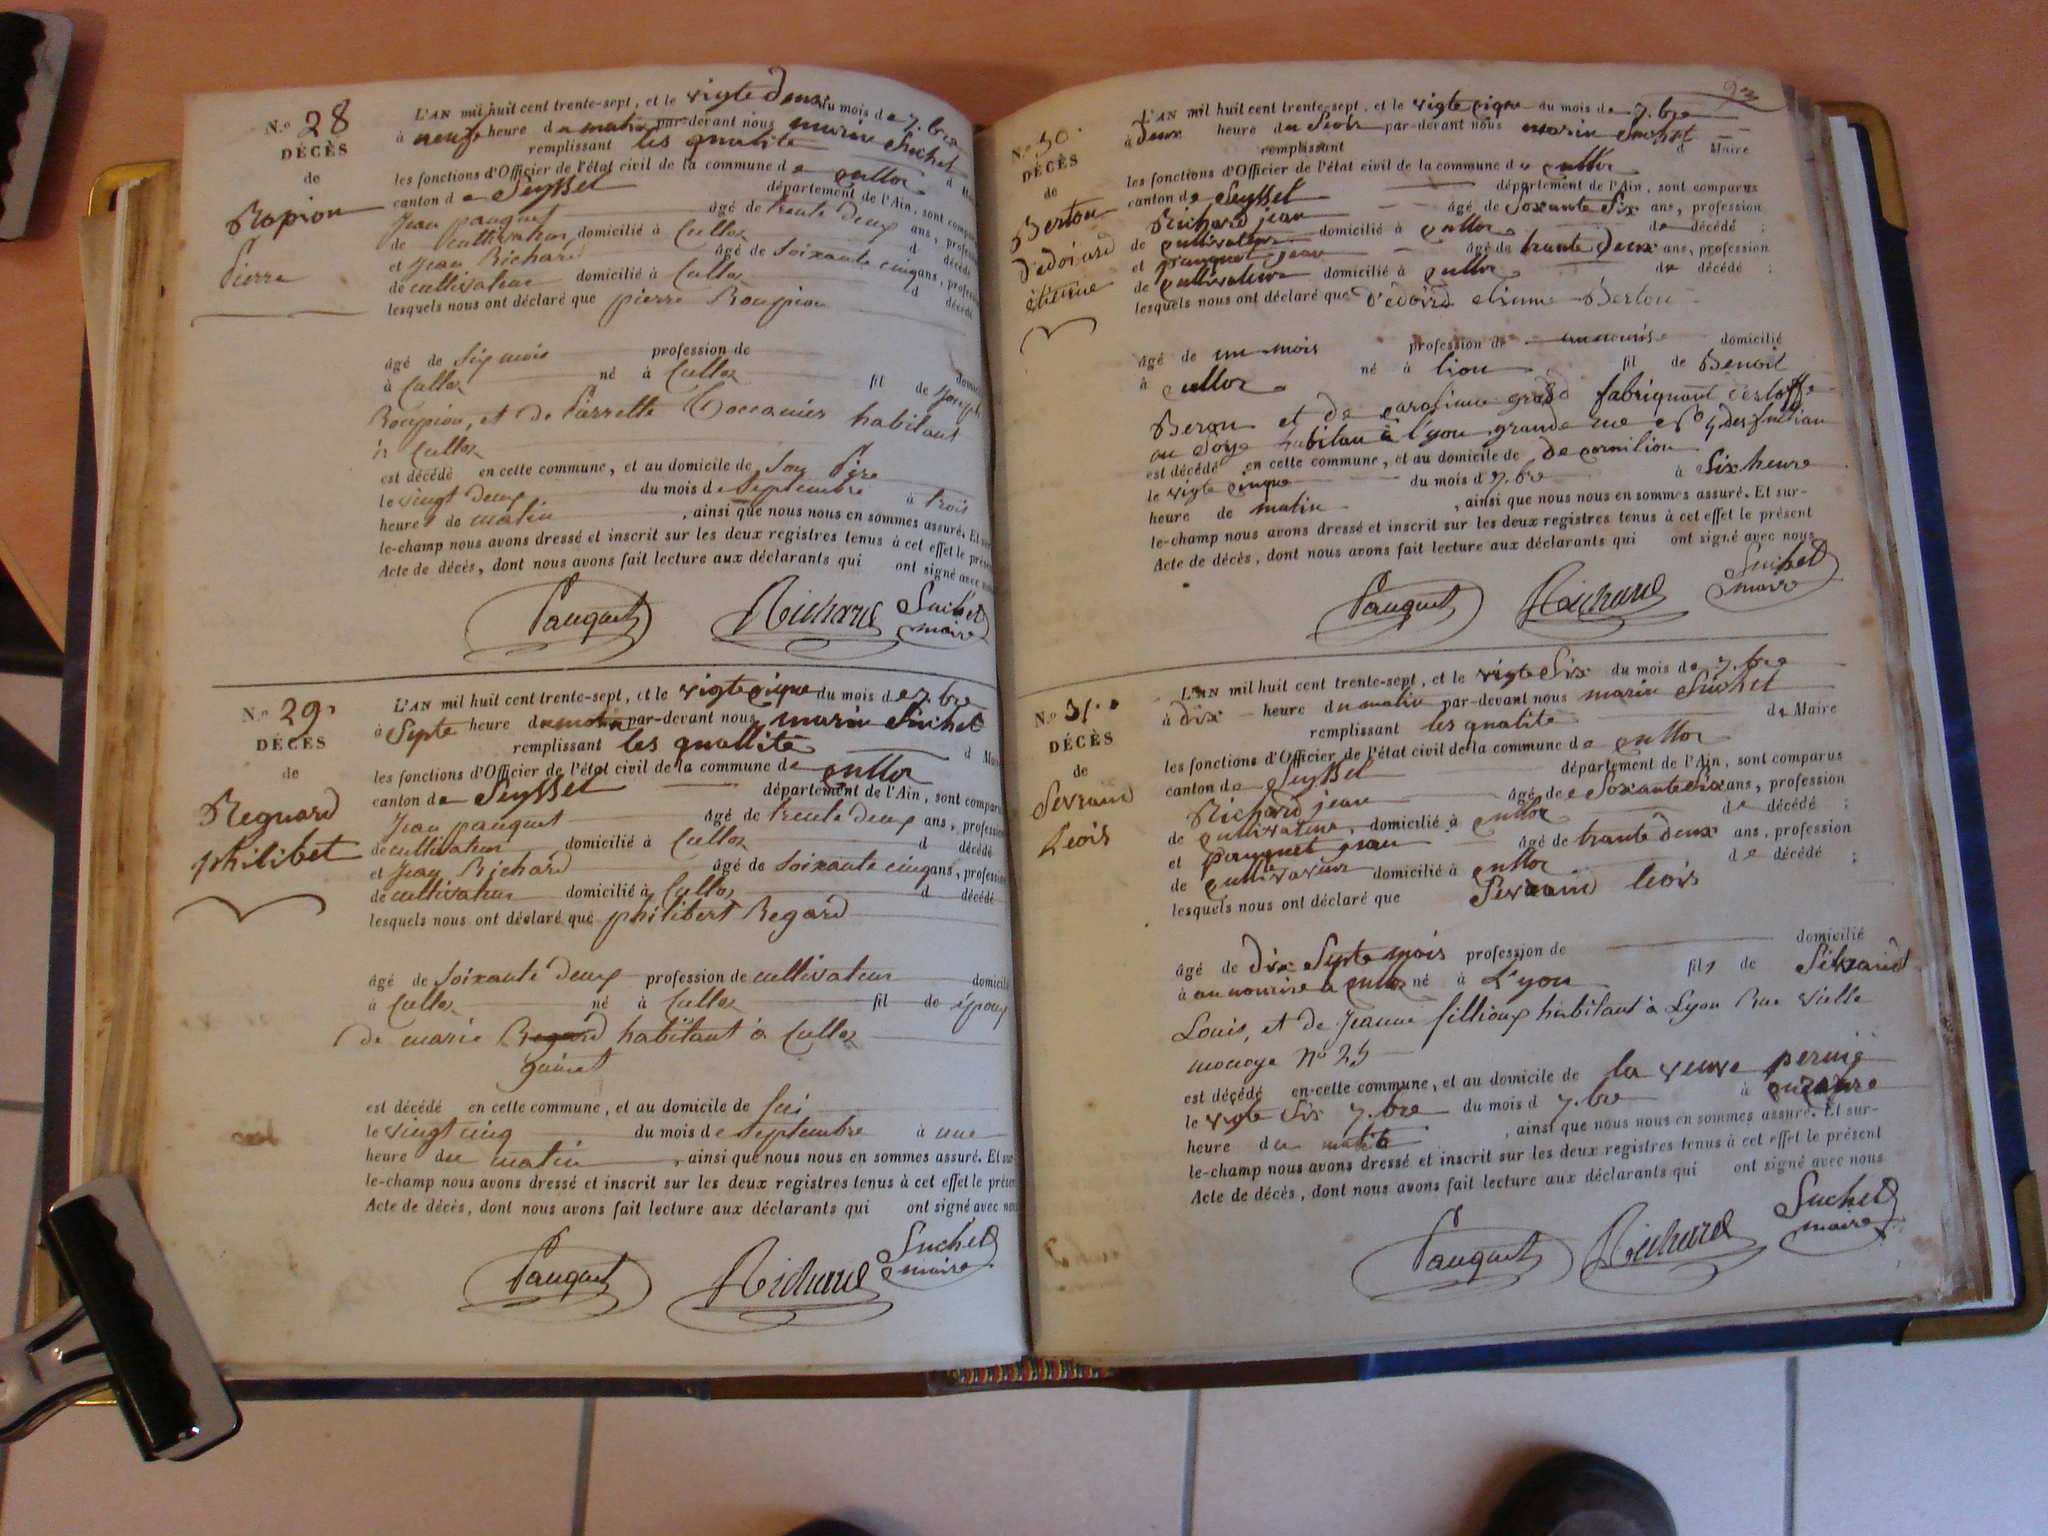 N.º 28
DÉCÈS
de
Ropion
Pierre
L'AN mil huit cent trente-sept, et le vigte deux du mois de 7.bre
à neuf heure du matin par-devant nous marin Suchet
remplissant les qualité d
les fonctions d'Officier de l'état civil de la commune de culloz
canton de Seyssel département de l'Ain, sont compa
Jean pauquet âgé de trente deux ans, profes
de cultivateur domicilié à Culloz d décédé
et Jean Richard âgé de soixante cinq ans, profess
de cultivateur domicilié à Culloz d décédé
lesquels nous ont déclaré que pierre Roupion
âgé de six mois profession de domic
à Culloz né à Culloz fil de Joseph
Roupion, et de Pierrette habitant
à Culloz
est décédé en cette commune, et au domicile de son Père
le vingt deux du mois de Septembre à trois
heure de matin, ainsi que nous nous en sommes assuré. Et sur
le-champ nous avons dressé et inscrit sur les deux registres tenus à cet effet le prése
Acte de décès, dont nous avons fait lecture aux déclarants qui ont signé avec nous
Pauquet Richard Suchet
maire
N.º 29
DÉCÈS
de
Reguard
philibet
L'AN mil huit cent trente-sept, et le vigte cinque du mois de 7.bre
à Septe heure du matin par-devant nous marin Suchet
remplissant les quallité d Mai
les fonctions d'Officier de l'état civil de la commune de culloz
canton de Seyssel département de l'Ain, sont comparu
Jean pauquet âgé de trente deux ans, profession
de cultivateur domicilié à Culloz d décédé
et Jean Richard âgé de soixante cinq ans, profession
de cultivateur domicilié à Culloz d décédé
lesquels nous ont déclaré que philibert Regard
âgé de soixante deux profession de cultivateur domicil
à Culloz né à Culloz fil de époux
de marie habitant à Culloz
guinet
est décédé en cette commune, et au domicile de lui
le vingt cinq du mois de Septembre à une
heure du matin, ainsi que nous nous en sommes assuré. Et sur
le-champ nous avons dressé et inscrit sur les deux registres tenus à cet effet le prése
Acte de décès, dont nous avons fait lecture aux déclarants qui ont signé avec nous
Pauquet Richard Suchet
maire
93
N.º 30
DÉCÈS
de
Berton
d'édoiard
étienne
L'AN mil huit cent trente-sept, et le vigte cique du mois de 7.bre
à deux heure du Soir par-devant nous marin Suchet
remplissant d Maire
les fonctions d'Officier de l'état civil de la commune de cullor
canton de Seyssel département de l'Ain, sont comparus
Richard jean âgé de Soxante Six ans, profession
de cultivateur domicilié à cullor de décédé ;
et pauquet jean âgé de trante deux ans, profession
de cultivateur domicilié à cullor de décédé ;
lesquels nous ont déclaré que d'édoird etienne Berton
âgé de un mois profession de domicilié
à cullor né à lion fil de Benoit
Beron et de caroline grand fabriquant
ou Soye habitan à l'yon grande rue
est décédé en cette commune, et au domicile de
le vigte cinque du mois d 7.bre à Six heure
heure de matin, ainsi que nous nous en sommes assuré. Et sur-
le-champ nous avons dressé et inscrit sur les deux registres tenus à cet effet le présent
Acte de décès, dont nous avons fait lecture aux déclarants qui ont signé avec nous
Pauquet Richard Suchet
maire
N.º 31
DÉCÈS
de
Sevraind
Leois
L'AN mil huit cent trente-sept, et le vigte Six du mois de 7.bre
à dix heure du matin par-devant nous marin Suchet
remplissant les qualité de Maire
les fonctions d'Officier de l'état civil de la commune de cullor
canton de Seyssel département de l'Ain, sont comparus
Richard jean âgé de Soxante Six ans, profession
de cultivateur, domicilié à cullor de décédé ;
et pauquet jean âgé de trante deux ans, profession
de cultivateur domicilié à cullor de décédé ;
lesquels nous ont déclaré que Sevraind leois
âgé de dix Septe mois profession de domicilié
à au nourise a culloz né à L'yon fils de
Louis, et de Jeanne fillioux habitant à Lyon Rue vielle
monoye Nº 25
est décédé en cette commune, et au domicile de la veuve
le vigte Six 7.bre du mois d 7.bre à
heure du, ainsi que nous nous en sommes assuré. Et sur-
le-champ nous avons dressé et inscrit sur les deux registres tenus à cet effet le présent
Acte de décès, dont nous avons fait lecture aux déclarants qui ont signé avec nous
Pauquet Richard Suchet
maire